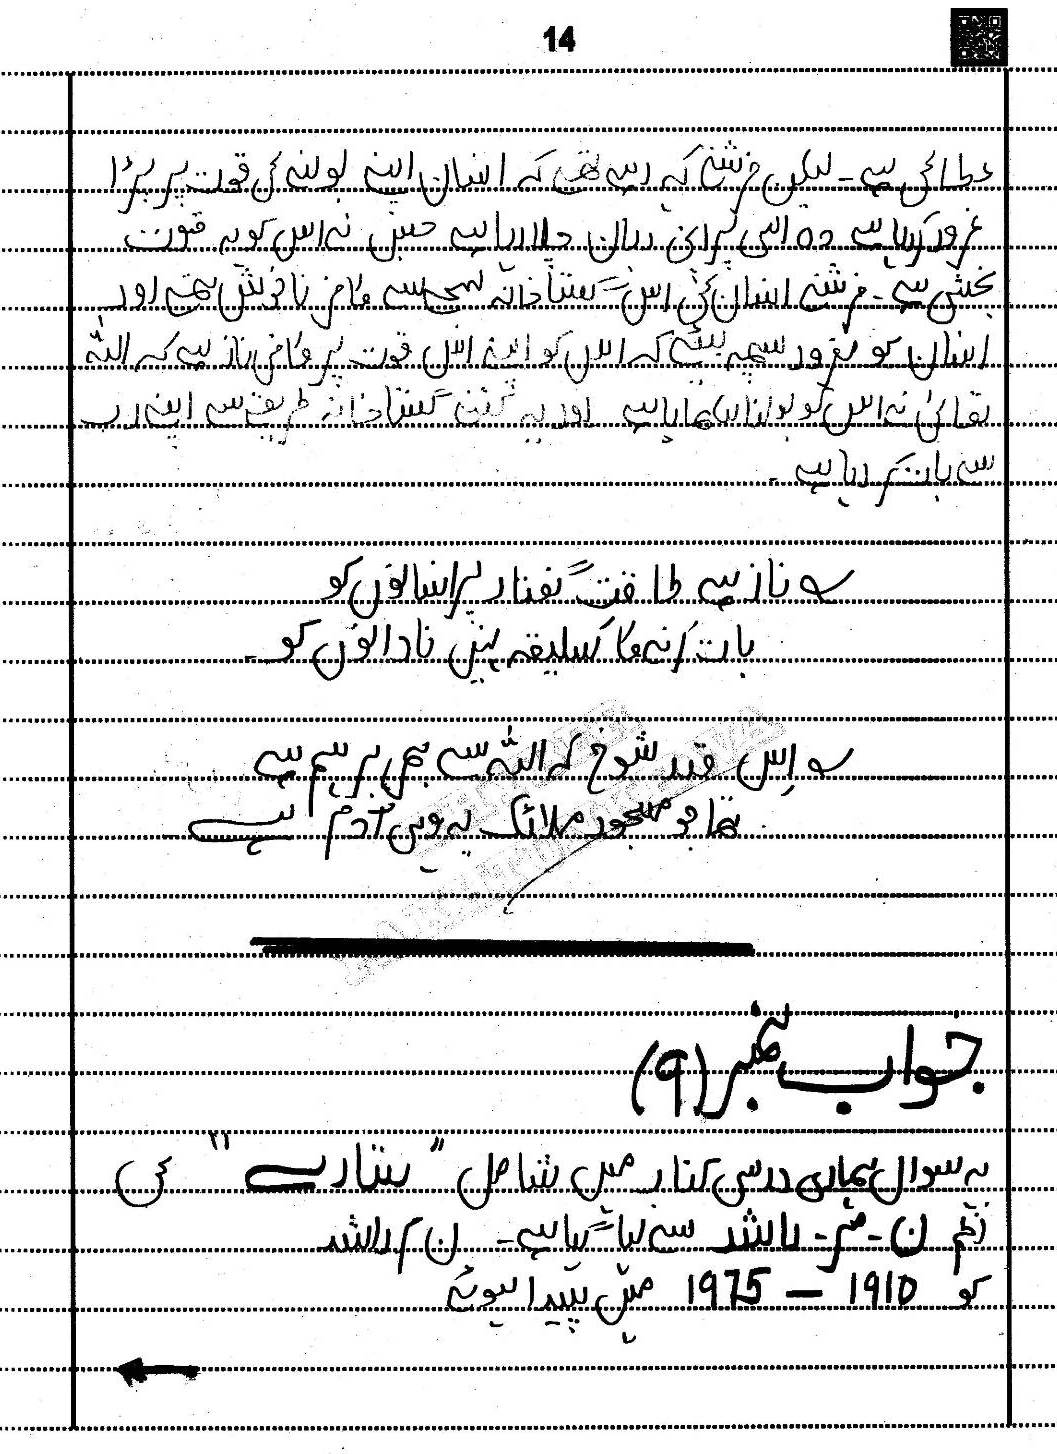 14
عطا کی ہے۔ لیکن فرشتے کہہ رہے تھے کہ انسان اپنے بولنے کی قوت پر بڑا
غرور کر رہا ہے وہ اسی پر اپنی زبان چلا رہا ہے جس نے اس کو یہ قوت
بخشی ہے۔ فرشتے انسان کی اس گستاخانہ لہجے سے کافی ناخوش تھے اور
انسان کو مغرور سمجھ بیٹھے کہ اس کو اپنے اس قوت پر کافی ناز ہے کہ اللہ
تعالیٰ نے اس کو بولنا سکھایا ہے اور یہ کتنے گستاخانہ طریقے سے اپنے رب
سے بات کر رہا ہے۔
؎ ناز ہے طاقت گفتار پر انسانوں کو
بات کرنے کا سلیقہ نہیں نادانوں کو۔
؎ اِس قدر شوخ کہ اللہ سے بھی برہم ہے
تھا جو مسجود ملائک یہ وہی آدم ہے
جواب نمبر (9)
یہ سوال ہماری درسی کتاب میں شامل "ستارے" کی
نظم ن۔م۔ راشد سے لیا گیا ہے۔ ن م راشد
کو 1910 – 1975 میں پیدا ہوئے